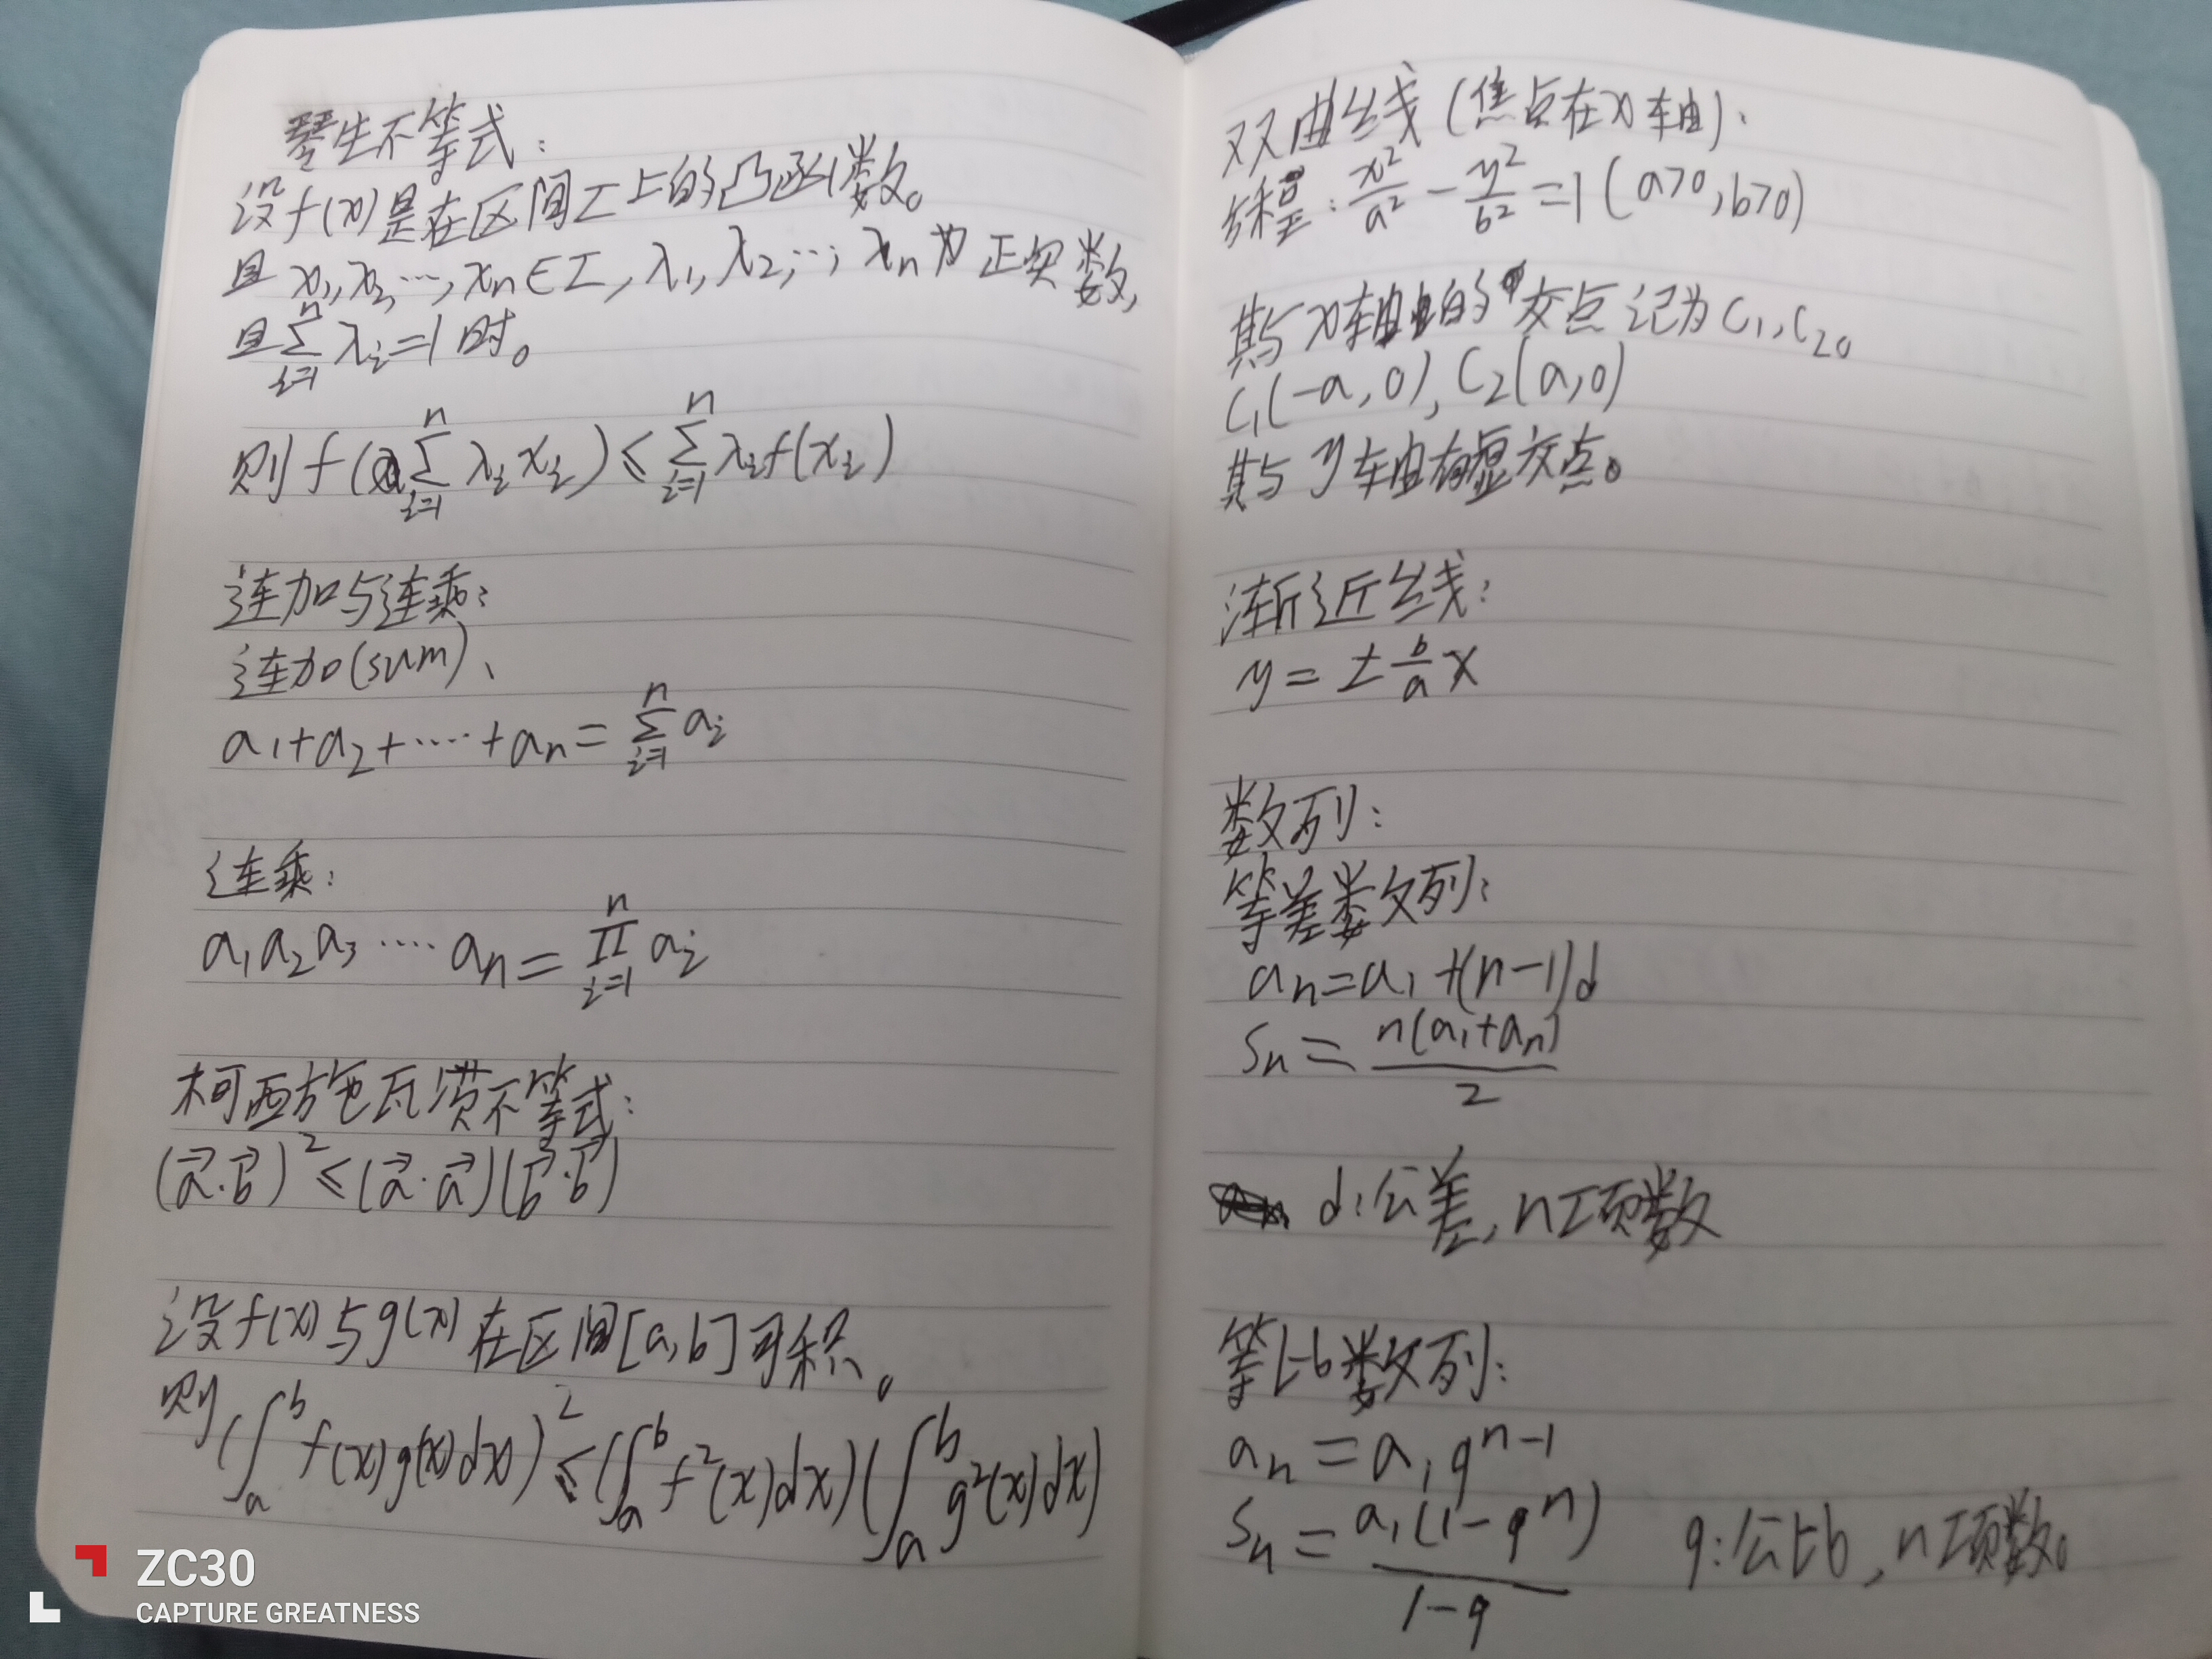 琴生不等式:
设f(x)是在区间I上的凸函数。
且 x₁,x₂,…,xₙ∈I,λ₁,λ₂,…,λₙ为正实数,
且∑ᵢ₌₁ⁿλᵢ=1时。
则f(∑ᵢ₌₁ⁿλᵢxᵢ)≤∑ᵢ₌₁ⁿλᵢf(xᵢ)
连加与连乘:
连加(sum)、
a₁+a₂+····+aₙ=∑ᵢ₌₁ⁿaᵢ
连乘:
a₁a₂a₃····aₙ=∏ᵢ₌₁ⁿaᵢ
柯西施瓦茨不等式:
(a⃗·b⃗)²≤(a⃗·a⃗)(b⃗·b⃗)
设f(x)与g(x)在区间[a,b]可积。
则(∫ₐᵇf(x)g(x)dx)²≤(∫ₐᵇf²(x)dx)(∫ₐᵇg²(x)dx)
双曲线(焦点在x轴):
x²/a²-y²/b²=1(a>0,b>0)
其与x轴的交点记为C₁,C₂。
C₁(-a,0),C₂(a,0)
其与y轴有虚交点。
渐近线:
y=±b/a x
数列:
等差数列:
aₙ=a₁+(n-1)d
Sₙ=n(a₁+aₙ)/2
d:公差,n工项数
等比数列:
aₙ=a₁qⁿ⁻¹
Sₙ=a₁(1-qⁿ)/1-q q:公比,n工项数。
ZC30
CAPTURE GREATNESS